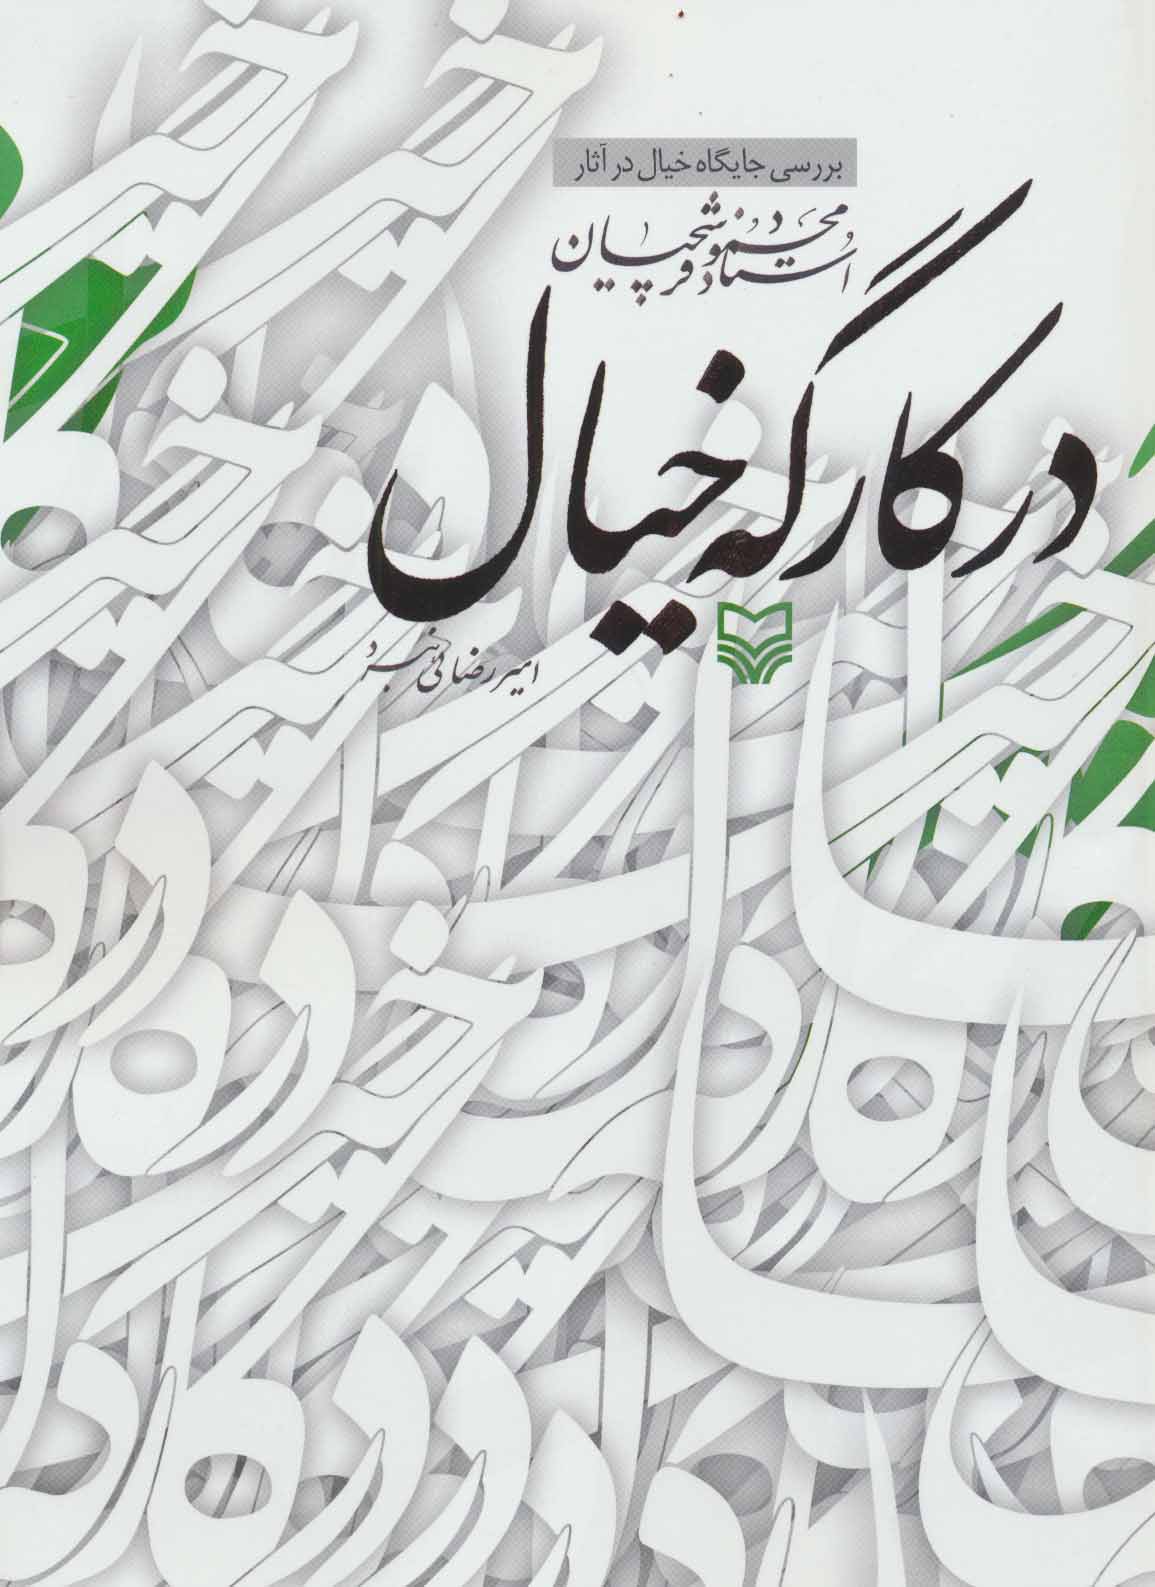 بررسی جایگاه خیال در آثار
استاد محمود فرشچیان
در کارگه خیال
امیر رضائی نبرد